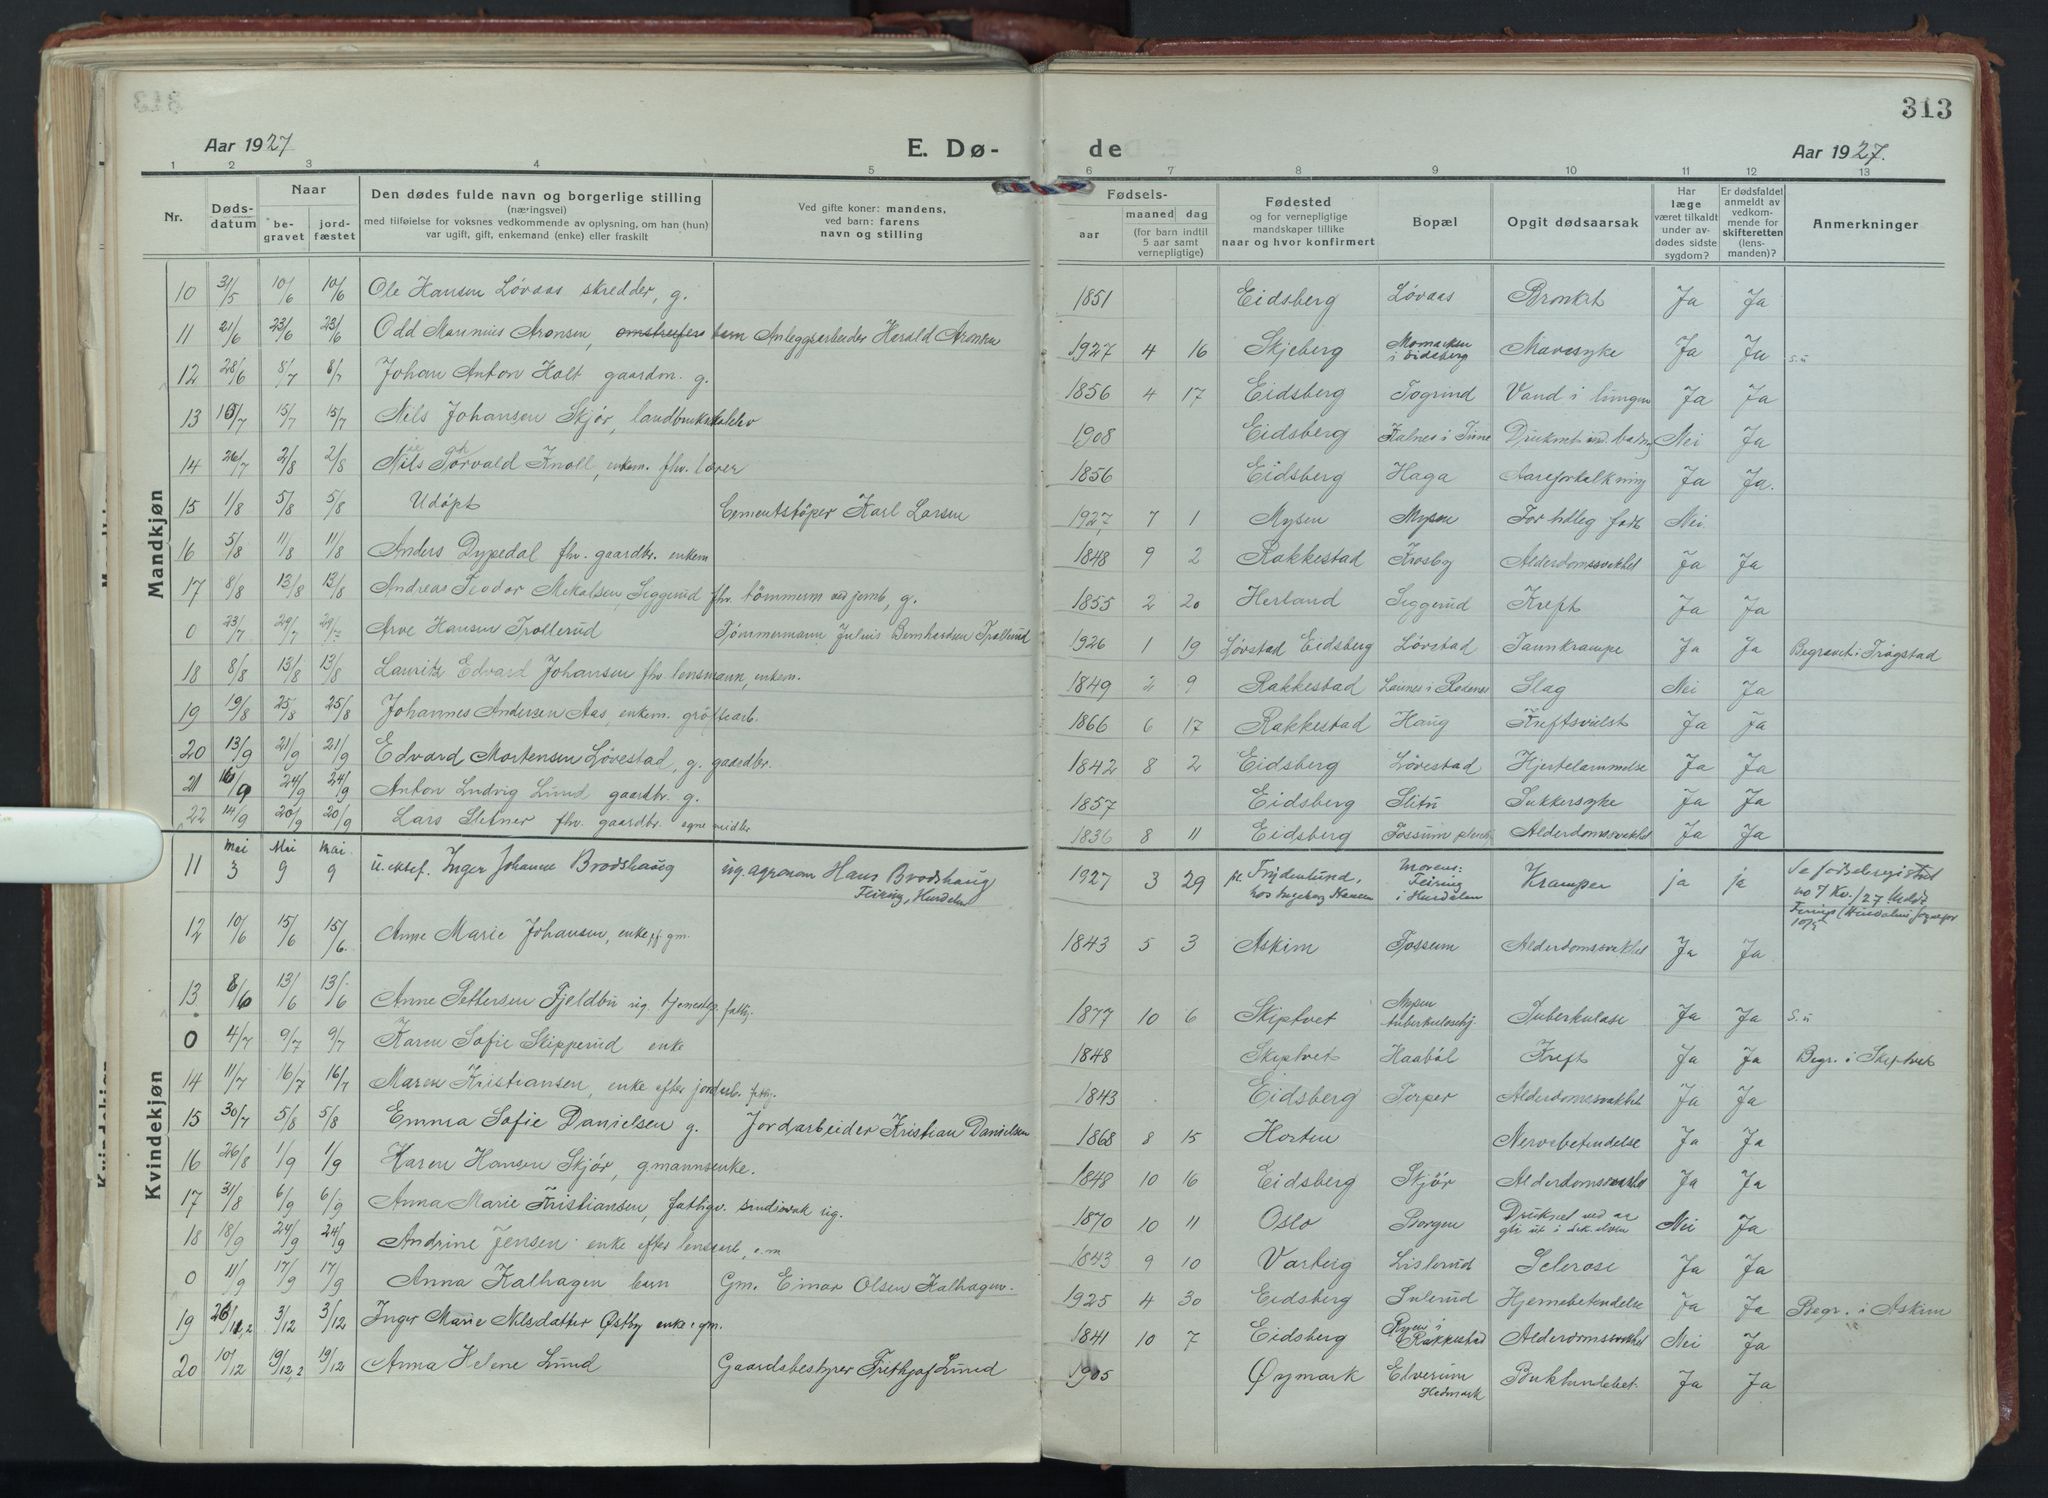 313
Aar 1927
E. Dø-
de
Aar 1927.
1 2 3 4 5 6 7 8 9 10 11 12 13
Nr.
Døds-
datum
Naar
be-
gravet
jord-
fæstet
Den dødes fulde navn og borgerlige stilling
(næringsvei)
med tilføielse for voksnes vedkommende av oplysning, om han (hun)
var ugift, gift, enkemand (enke) eller fraskilt
Ved gifte koner: mandens,
ved barn: farens
navn og stilling
Fødsels-
aar
maaned
dag
(for barn indtil
5 aar samt
vernepligtige)
Fødested
og for vernepligtige
mandskaper tillike
naar og hvor konfirmert
Bopæl
Opgit dødsaarsak
Har
læge
været tilkaldt
under av-
dødes sidste
sygdom?
Er dødsfaldet
anmeldt av
vedkom-
mende for
skifteretten
(lens-
manden)?
Anmerkninger
Mandkjøn
10 31/5 10/6 10/6 Ole Hansen Løvaas skredder, g. 1851 Eidsberg Løvaas Bronkit Ja Ja
11 21/6 23/6 23/6 Odd Marinius Aronsen, omstreifers barn Anleggsarbeider Harald Aronsen 1927 4 16 Skjeberg Momarken i Eidsberg Mavesyke Ja Ja s.u
12 28/6 8/7 8/7 Johan Anton Holt gaardm. g. 1856 4 17 Eidsberg Togrind Vand i lungen Ja Ja
13 10/7 15/7 15/7 Nils Johansen Skjør, landbruksskoleelev 1908 Eidsberg Kalnes i Tune Druknet und. badn. Nei Ja
14 26/7 2/8 2/8 Nils Thorvald Knoll, enkem. fhv. lærer 1856 Eidsberg Haga Aareforkalkning Ja Ja.
15 1/8 5/8 5/8 Udøpt Cementstøper Karl Larsen 1927 7 1 Mysen Mysen For tidleg født Nei.
16 5/8 11/8 11/8 Anders Dypedal fhv. gaardbr. enkem 1848 9 2 Rakkestad Krosby Alderdomssvakhet Ja Ja
17 8/8 13/8 13/8 Andreas Teodor Mikalsen Siggerud fhv. tømmerm ved jernb, g. 1855 2 20 Herland Siggerud Kreft Ja Ja
0 23/7 29/7 29/7 Arve Hansen Trollerud Tømmermann Julius Bernhardsen Trollerud 1926 1 19 Løvstad Eidsberg Løvstad Tannkrampe Ja Ja Begravet i Trøgstad
18 8/8 13/8 13/8 Lauritz Edvard Johansen fhv lensmann, enkem. 1849 2 9 Rakkestad i Rødenes Slag Nei Ja
19 19/8 25/8 25/8 Johannes Andersen Aas, enkem. grøftearb. 1866 6 17 Rakkestad Haug Kreftsvulst Ja Ja
20 13/9 21/9 21/9 Edvard Mortensen Løvestad, g. gaardbr. 1842 8 2 Eidsberg Løvestad Hjertelammelse Ja Ja
21 16/9 24/9 24/9 Anton Ludvig Lund gaardbr. g. 1857 Eidsberg Slitu Sukkersyke Ja Ja
22 14/9 20/9 20/9 Lars Sletner fhv. gaardbr. egne midler 1836 8 11 Eidsberg Fossum Alderdomssvakhet Ja Ja
Kvindekjøn
11 Mai 3 Mai 9 Mai 9 u. ektef. Inger Johanne Brodshaug ug. agronom Hans Brodshaug Feiring, Hurdalen 1927 3 29 Frydenlund, hos Ingeborg Hansen Morens: Feiring i Hurdalen Kramper ja ja Se fødselsregistret no 7 Kv. /27 Meldt
12 10/6 15/6 15/6 Anne Marie Johansen, enke gm. 1843 5 3 Askim Fossum Alderdomssvakhet Ja Ja
13 8/6 13/6 13/6 Anne Pettersen Fjeldbu ug. fattig. 1877 10 6 Skiptvet Mysen tuberkulosehj. Tuberkulose Ja Ja s.u
0 4/7 9/7 9/7 Karen Sofie Skipperud enke 1848 Skiptvet Haabøl Kreft Ja Ja Begr. i Skiptvet
14 11/7 16/7 16/7 Maren Kristiansen, enke efter jordarb. fattig. 1843 Eidsberg Torper Alderdomssvakhet Ja Ja
15 30/7 5/8 5/8 Emma Sofie Danielsen g. Jordarbeider Kristian Danielsen 1868 8 15 Horten Nervebetendelse Ja Ja
16 26/8 1/9 1/9 Karen Hansen Skjør, g.mannsenke. 1848 10 16 Eidsberg Skjør Alderdomssvakhet Ja Ja
17 31/8 6/9 6/9 Anna Marie Kristiansen, fattigv. sindssvak ug. 1870 10 11 Oslo Borgen Druknet ved Nei Ja
18 18/9 24/9 24/9 Andrine Jensen enke efter lensarb, e.m 1843 9 10 Varteig Lislerud Sclerose Ja Ja
0 11/9 17/9 17/9 Anna Kalhagen barn Gm. Einar Olsen Kalhagen. 1925 4 30 Eidsberg Sulerud Hjernebetendelse Ja Ja Begr. i Askim
19 26/12 3/12 3/12 Inger Marie Nilsdatter Østby enke e. gm. 1841 10 7 Eidsberg i Rakkestad Alderdomssvakhet Nei Ja
20 10/12 19/12 19/12 Anna Helene Lund Gaardsbestyrer Frithjof Lund 1905 Øymark Elverum Hedmark Bukhindebet. Ja Ja